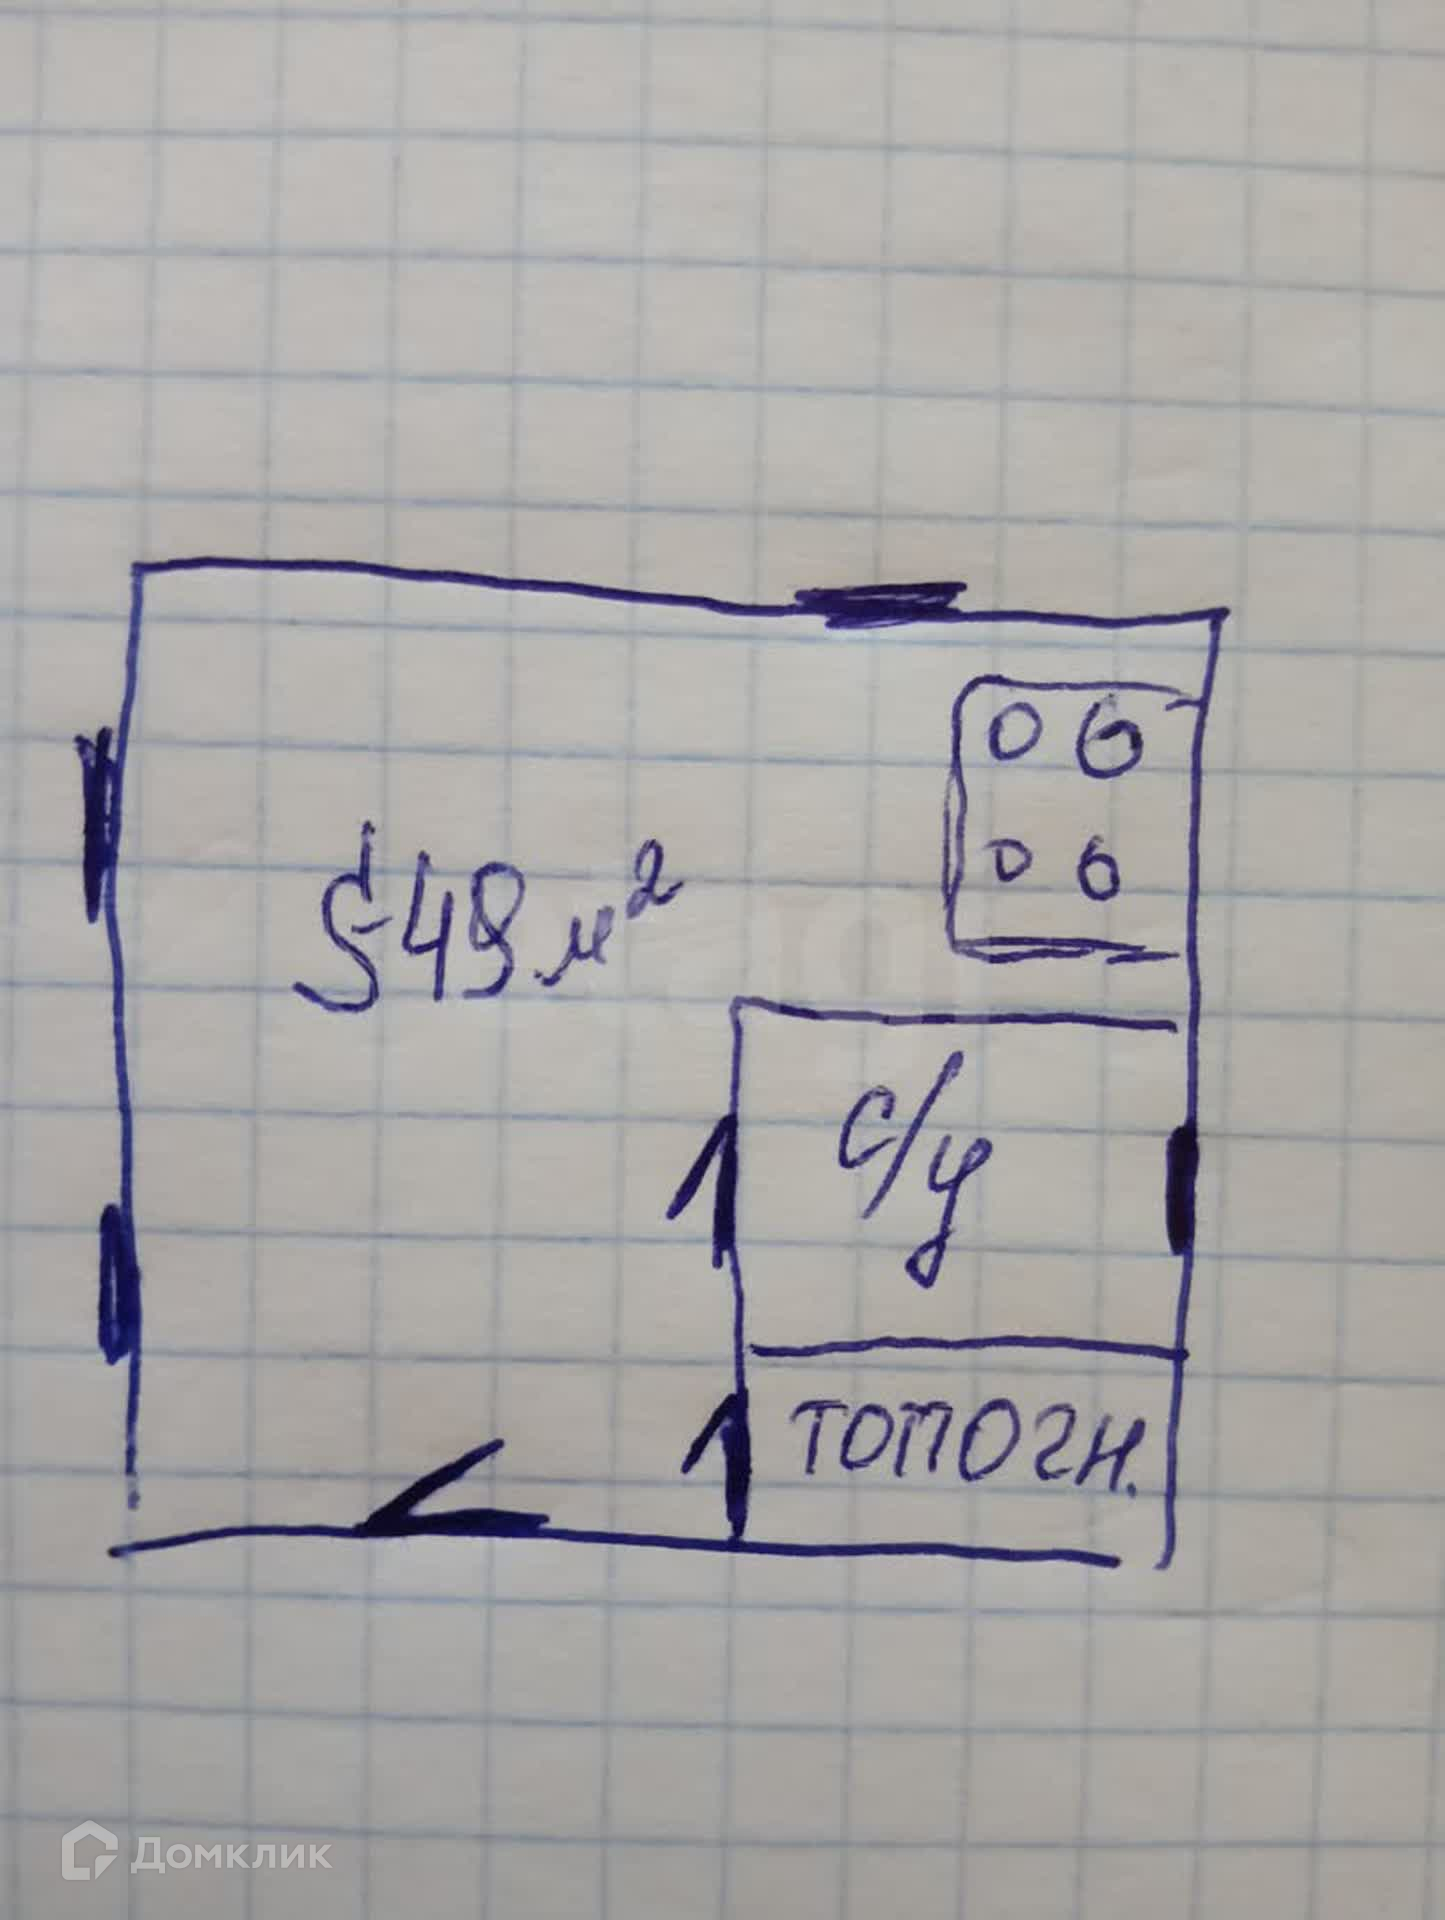 S 49 м²
с/у
ТОПОГН.
Домклик